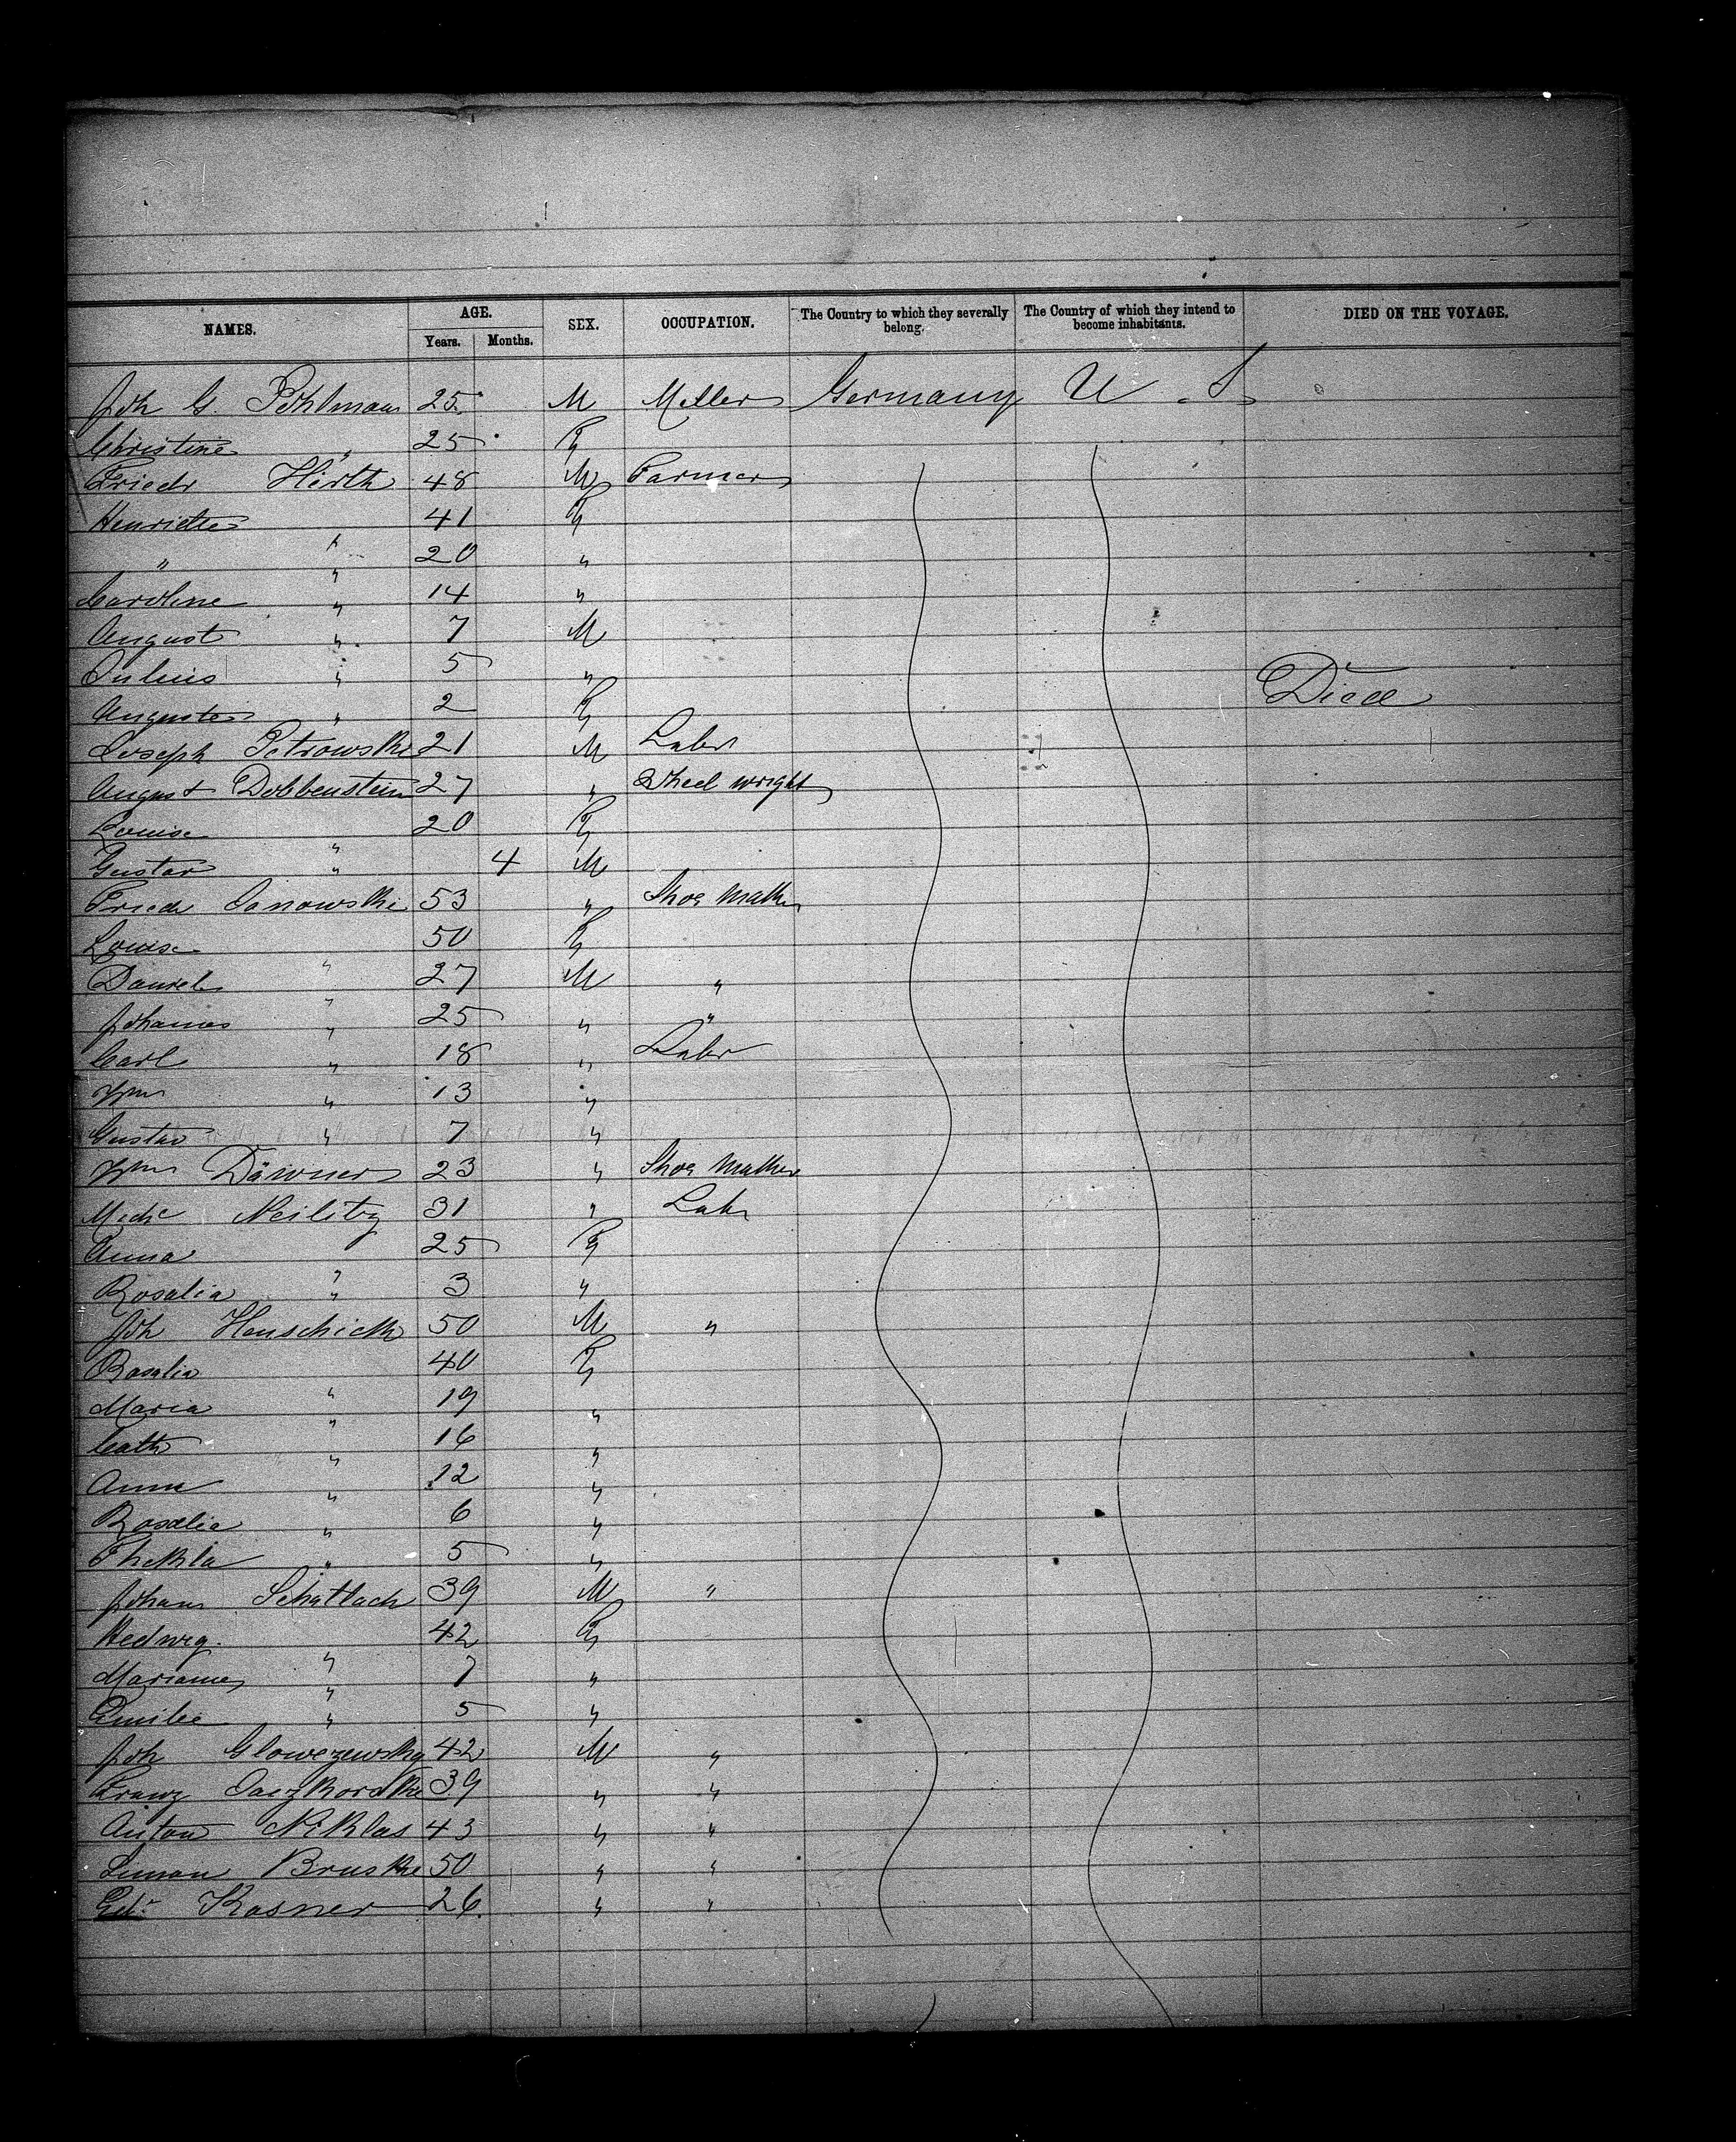 NAMES. AGE. SEX. OCCUPATION. The Country to which they severally belong. The Country of which they intend to become inhabitants. DIED ON THE VOYAGE.
Years. Months.
Joh G. Pohlman 25 M Miller Germany U. S
Christine " 25 F
Friedr Hirth 48 M Farmer
Henriette " 41 F
" " 20 "
Caroline " 14 "
August " 7 M
Julius " 5 "
Auguste " 2 F Died
Joseph Petrowski 21 M Labr
August Dobbenstein 27 " Wheel wright
Louise " 20 F
Gustav " 4 M
Friedr Janowski 53 " Shoe Maker
Louise " 50 F
Daniel " 27 M "
Johannes " 25 " "
Carl " 18 " Labr
Wm " 13 "
Gustav " 7 "
Wm Däwner 23 " Shoe Maker
Neilitz 31 " Labr
Anna " 25 F
Rosalia " 3 "
Joh Henschick 50 M "
Rosalia " 40 F
Maria " 19 "
Cath " 16 "
Anna " 12 "
Rosalie " 6 "
Thekla " 5 "
Johann Schatlach 39 M "
Hedwig " 42 F
Marianne " 7 "
Emilie " 5 "
Joh Glowezewsky 42 M "
Franz 39 " "
Anton Niklas 43 " "
Simon Bruske 50 " "
Edr Kasner 26 " "